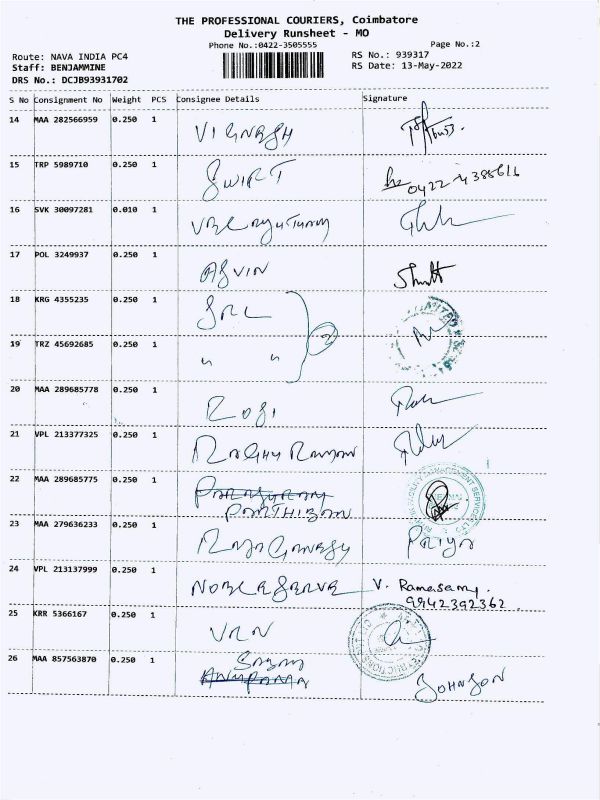 THE PROFESSIONAL COURIERS, Coimbatore
Delivery Runsheet - MO
Phone No.:0422-3505555
Page No.:2
Route: NAVA INDIA PC4
RS No.: 939317
Staff: BENJAMMINE
RS Date: 13-May-2022
DRS No.: DCJB93931702
S No Consignment No Weight PCS Consignee Details Signature
14 MAA 282566959 0.250 1 VIGNESH
15 TRP 5989710 0.250 1 SWIRT 0422-4385616
16 SVK 30097281 0.010 1
17 POL 3249937 0.250 1 ASVIN
18 KRG 4355235 0.250 1 SRL
2
19 TRZ 45692685 0.250 1 " "
20 MAA 289685778 0.250 1 ROSI
21 VPL 213377325 0.250 1 RAGHU RAMAN
22 MAA 289685775 0.250 1
PARTHIBAN
23 MAA 279636233 0.250 1 RAJA GANESH Priya
24 VPL 213137999 0.250 1 NOBLE SERVE V. Ramasamy.
9942392362
25 KRR 5366167 0.250 1 VRN
26 MAA 857563870 0.250 1
ANUPAMA JOHNSON